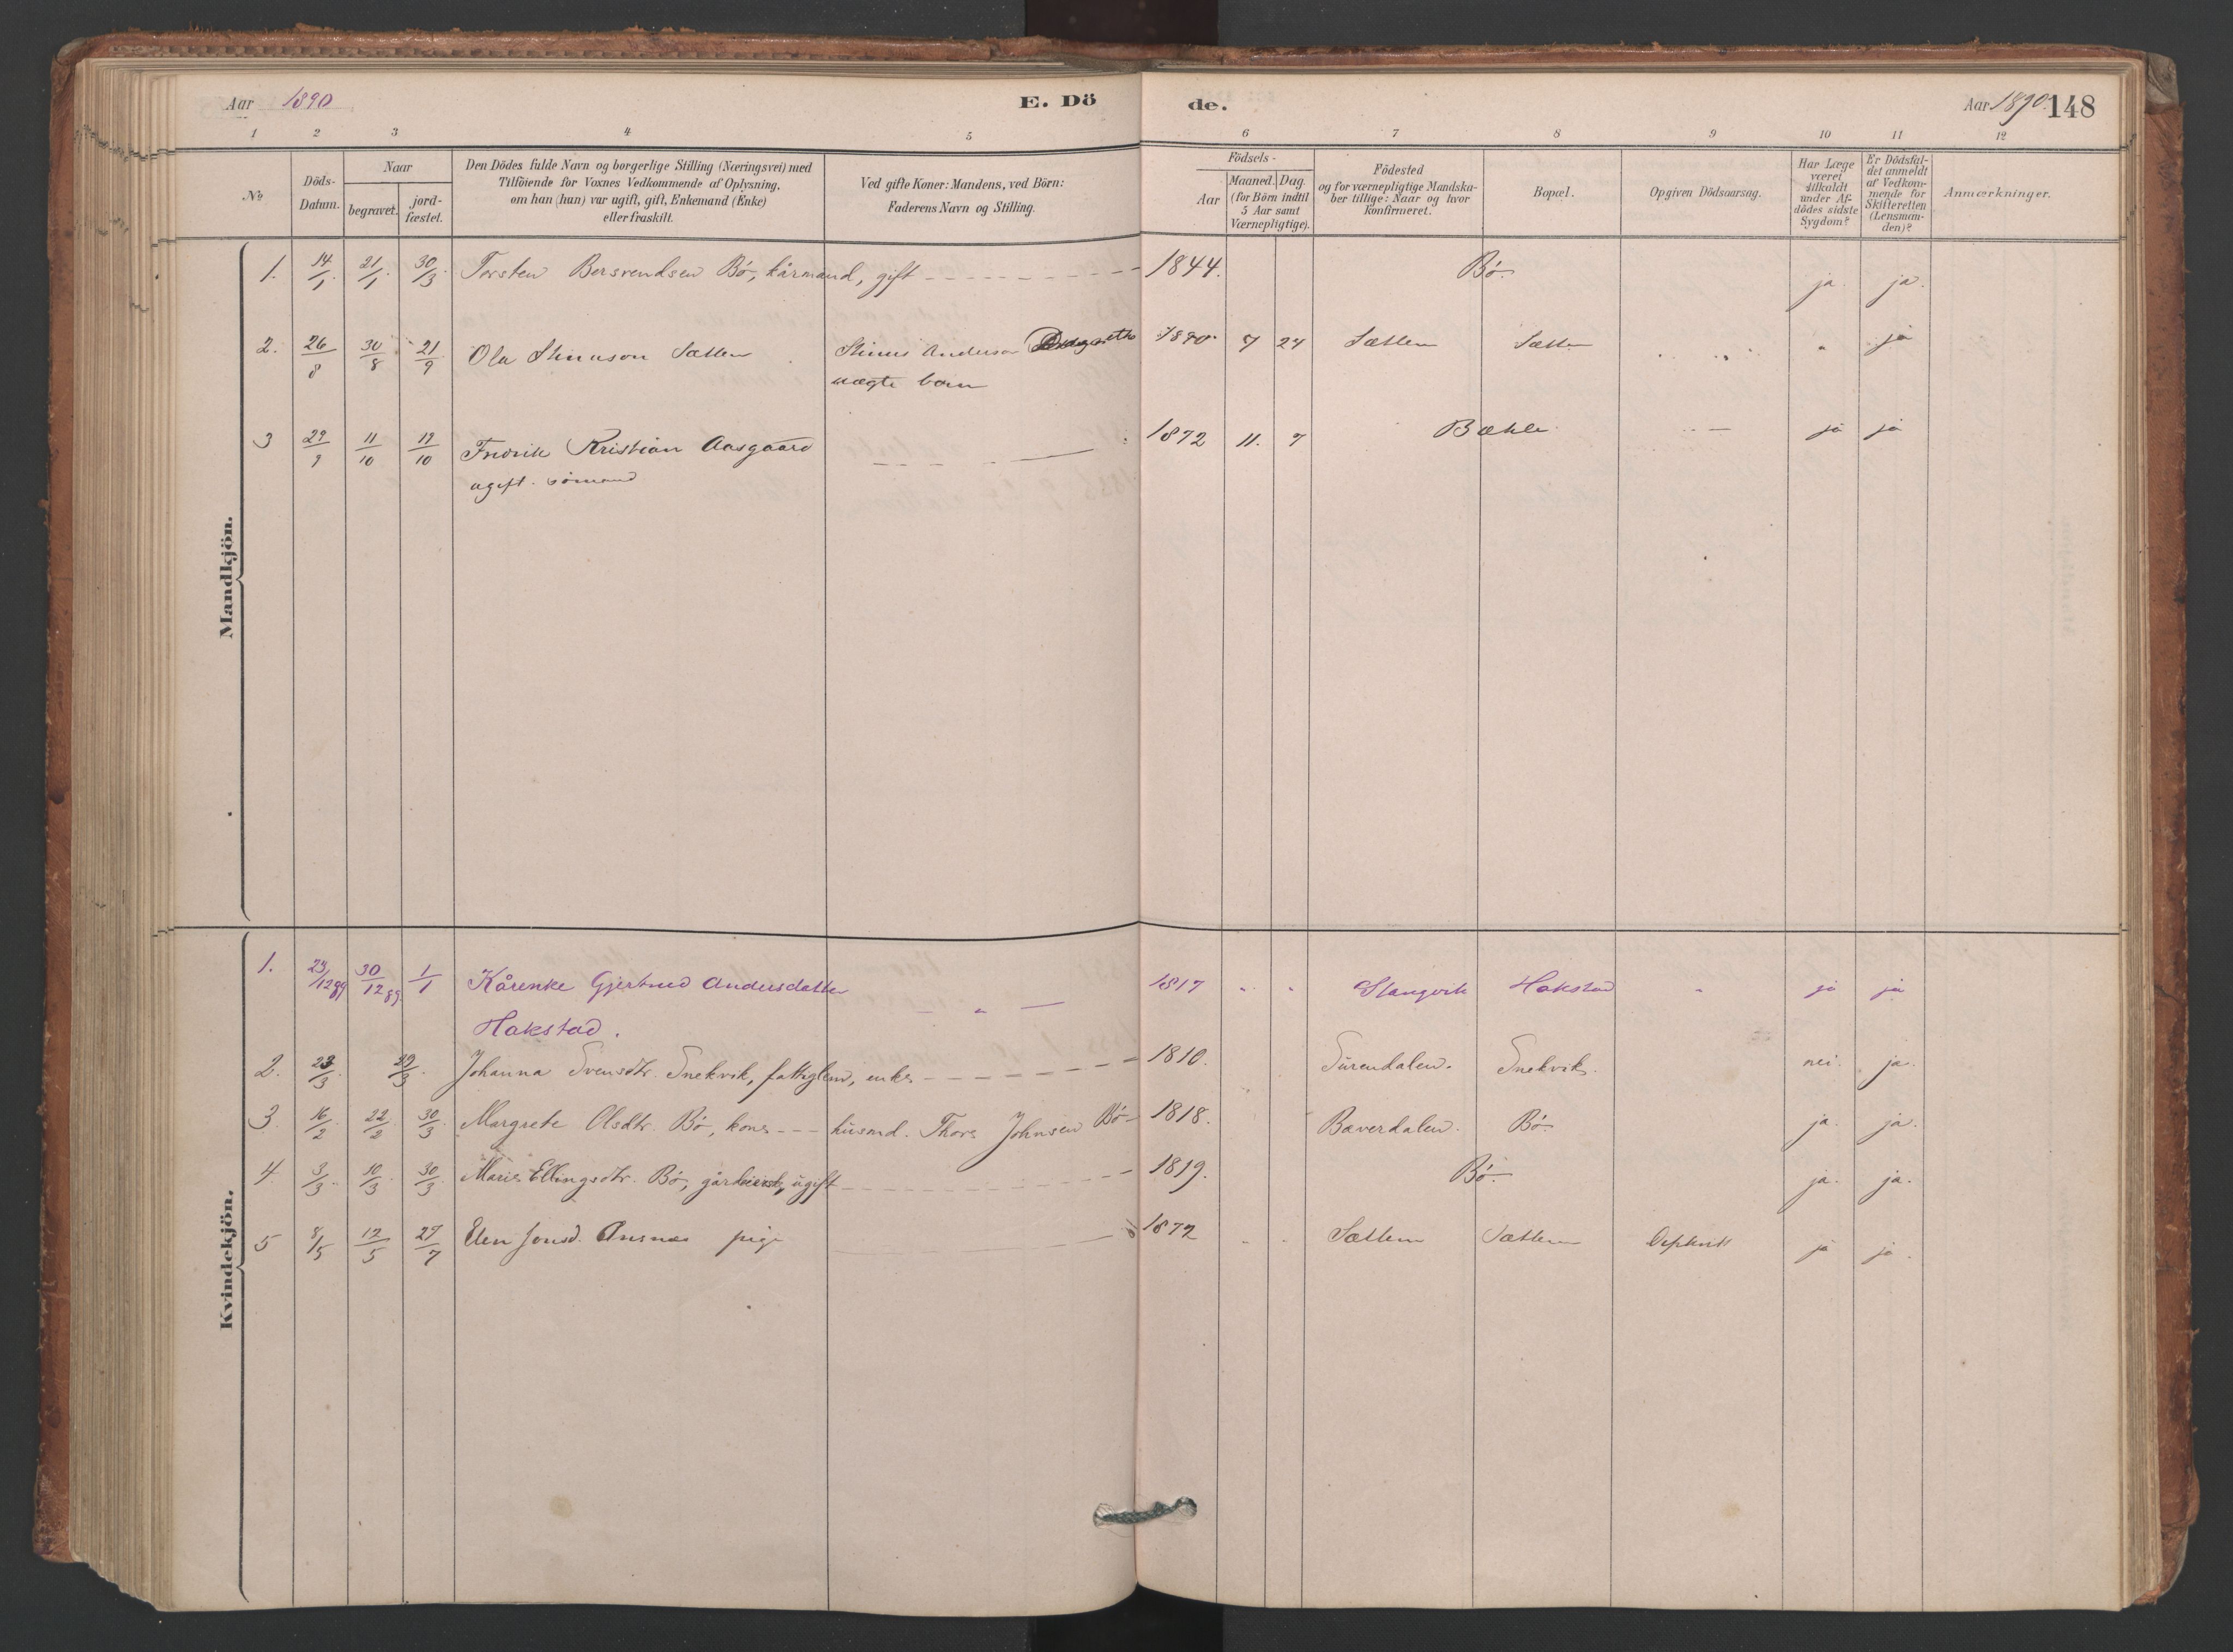 Aar 1890 E. Dö de. Aar 1890. 148
1 2 3 4 5 6 7 8 9 10 11 12
No. Döds-Datum. Naar begravet. jord-fæstet. Den Dödes fulde Navn og borgerlige Stilling (Næringsvei) med Tilföiende for Voxnes Vedkommende af Oplysning, om han (hun) var ugift, gift, Enkemand (Enke) eller fraskilt. Ved gifte Koner: Mandens, ved Börn: Faderens Navn og Stilling. Födsels- Aar Maaned. Dag. (for Börn indtil 5 Aar samt Værnepligtige). Födested og for værnepligtige Mandskaber tillige: Naar og hvor konfirmeret. Bopæl. Opgiven Dödsaarsag. Har Læge været tilkaldt under Afdödes sidste Sygdom? Er Dödsfaldet anmeldt af Vedkommende for Skifteretten (Lensmanden)? Anmærkninger.
Mandkjön.
1. 14/1. 21/1. 30/3. Torsten Bersvendsen Bö, kårmand, gift 1844. Bö. ja. ja.
2. 26/8 30/8 21/9 Ola Stinuson Sættem Stinus Anderson 1890. 7 24 Sættem Sættem " ja
uægte barn
3 29/9 11/10 19/10 Fredrik Kristian Aasgaard 1872 11. 7 Bæhle ja ja
ugift. sömand
Kvindekjön.
1. 23/12 89 30/12 89. 1/1 Kårenke Gjertrud Andersdatter " 1817 " " Stangvik Hakstad " ja ja
Hakstad.
2. 23/3. 29/3. Johanna Svensdtr. Snekvik, fattiglem, enke 1810. Surendalen. Snekvik. nei. ja.
3. 16/2 22/2 30/3 Margrete Olsdtr. Bö, kone husmd. Thore Johnsen Bö 1818. Bæverdalen. Bö. ja. ja.
4. 3/3. 10/3 30/3 Marie Ellingsdtr. Bö, ugift 1819. Bö. ja. ja.
5 8/5 12/5 27/7 Elen Jonsd. Ansnes pige 1872 " " Sættem Sættem ja ja.